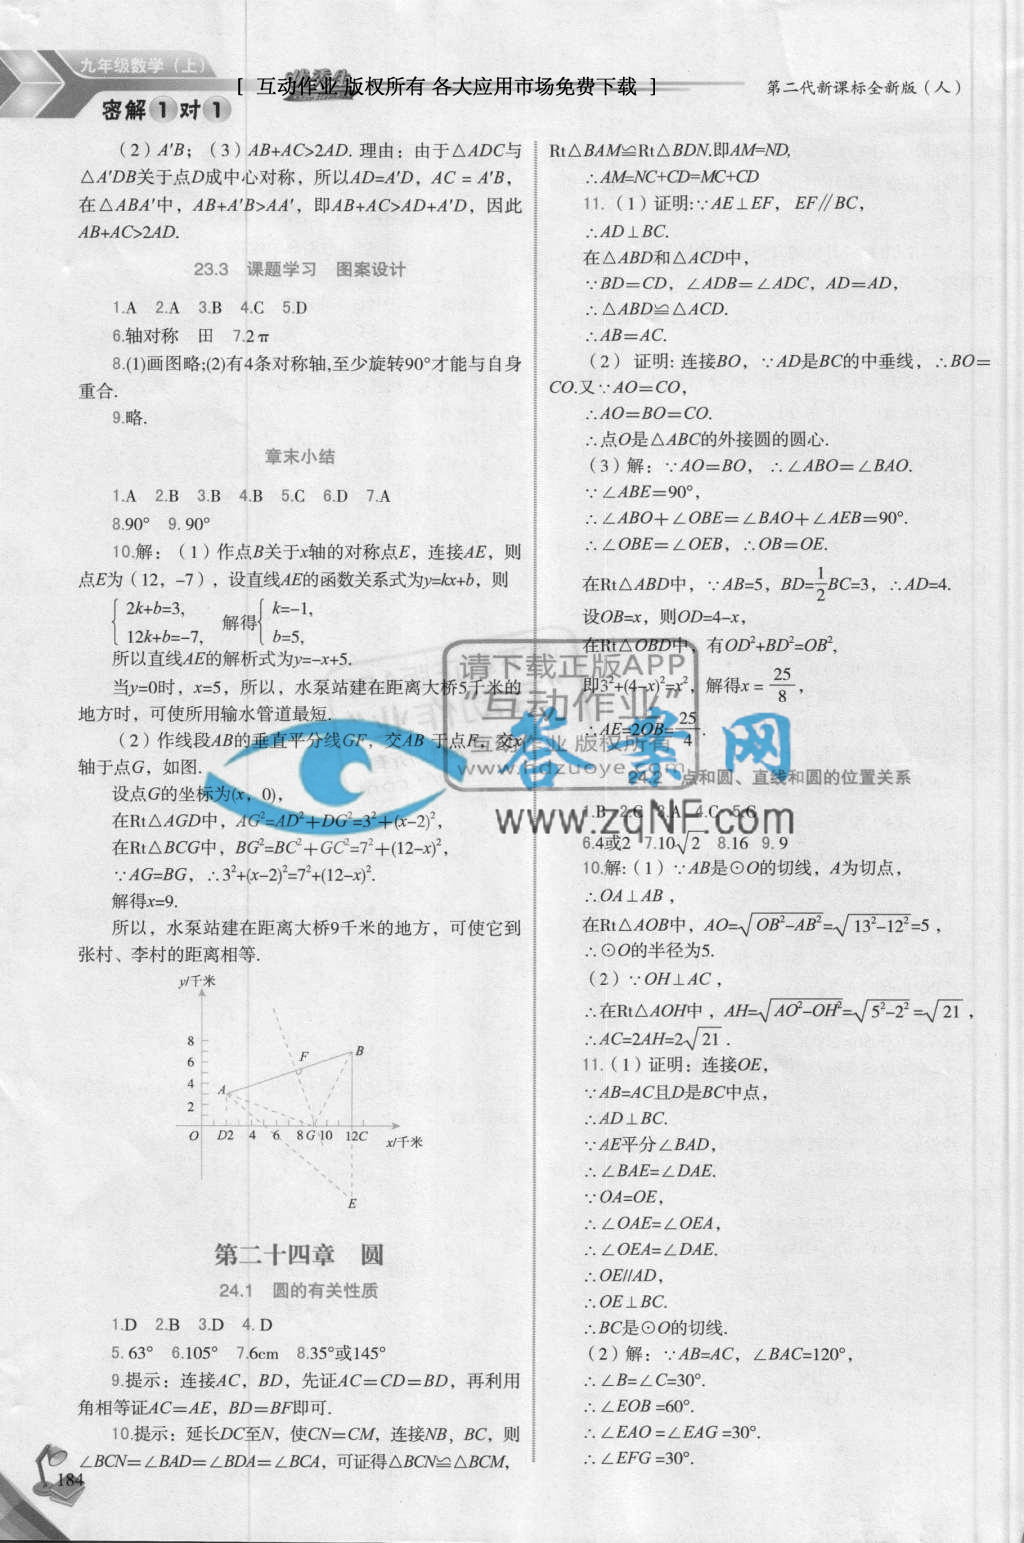 九年级数学（上）
密解1对1
[ 互动作业 版权所有 各大应用市场免费下载 ]
第二代新课标全新版（人）
（2）A′B；（3）AB+AC>2AD. 理由：由于△ADC与
△A′DB关于点D成中心对称，所以AD=A′D，AC = A′B，
在△ABA′中，AB+A′B>AA′，即AB+AC>AD+A′D，因此
AB+AC>2AD.
23.3 课题学习 图案设计
1.A 2.A 3.B 4.C 5.D
6.轴对称 田 7.2π
8.(1)画图略;(2)有4条对称轴,至少旋转90°才能与自身
重合.
9.略.
章末小结
1.A 2.B 3.B 4.B 5.C 6.D 7.A
8.90° 9. 90°
10.解：（1）作点B关于x轴的对称点E，连接AE，则
点E为（12，-7），设直线AE的函数关系式为y=kx+b，则
{2k+b=3, 12k+b=-7, 解得{k=-1, b=5,
所以直线AE的解析式为y=-x+5.
当y=0时，x=5，所以，水泵站建在距离大桥5千米的
地方时，可使所用输水管道最短.
（2）作线段AB的垂直平分线GF，交AB 于点F，交x
轴于点G，如图.
设点G的坐标为(x，0)，
在Rt△AGD中，AG²=AD²+DG²=3²+(x-2)²，
在Rt△BCG中，BG²=BC²+GC²=7²+(12-x)²，
∵AG=BG，∴3²+(x-2)²=7²+(12-x)².
解得x=9.
所以，水泵站建在距离大桥9千米的地方，可使它到
张村、李村的距离相等.
y/千米
8
6
4
2
A
F
B
O D2 4 6 8 G 10 12C
x/千米
E
第二十四章 圆
24.1 圆的有关性质
1.D 2.B 3.D 4. D
5. 63° 6.105° 7.6cm 8.35°或145°
9.提示：连接AC，BD，先证AC=CD=BD，再利用
角相等证AC=AE，BD=BF即可.
10.提示：延长DC至N，使CN=CM，连接NB，BC，则
∠BCN=∠BAD=∠BDA=∠BCA，可证得△BCN≌△BCM，
184
Rt△BAM≌Rt△BDN.即AM=ND,
∴AM=NC+CD=MC+CD
11.（1）证明:∵AE⊥EF， EF∥BC，
∴AD⊥BC.
在△ABD和△ACD中，
∵BD=CD，∠ADB=∠ADC，AD=AD，
∴△ABD≌△ACD.
∴AB=AC.
（2） 证明: 连接BO，∵AD是BC的中垂线，∴BO=
CO.又∵AO=CO，
∴AO=BO=CO.
∴点O是△ABC的外接圆的圆心.
（3）解：∵AO=BO， ∴∠ABO=∠BAO.
∵∠ABE=90°，
∴∠ABO+∠OBE=∠BAO+∠AEB=90°.
∴∠OBE=∠OEB，∴OB=OE.
在Rt△ABD中，∵AB=5，BD=1/2BC=3，∴AD=4.
设OB=x，则OD=4-x，
在Rt△OBD中，有OD²+BD²=OB²，
即3²+(4-x)²=x²，解得x = 25/8，
∴AE=2OB=25/4.
请下载正版APP
“互动作业”
互动作业 版权所有
www.hdzuoye.com
答案网
www.zqNF.com
24.2 点和圆、直线和圆的位置关系
1.B 2.C 3.A 4.C 5.C
6.4或2 7.10√2 8.16 9. 9
10.解:（1）∵AB是⊙O的切线，A为切点，
∴OA⊥AB ，
在Rt△AOB中，AO=√OB²-AB²=√13²-12²=5，
∴⊙O的半径为5.
（2）∵OH⊥AC，
∴在Rt△AOH中，AH=√AO²-OH²=√5²-2²=√21，
∴AC=2AH=2√21 .
11.（1）证明：连接OE，
∵AB=AC且D是BC中点，
∴AD⊥BC.
∵AE平分∠BAD，
∴∠BAE=∠DAE.
∵OA=OE，
∴∠OAE=∠OEA，
∴∠OEA=∠DAE.
∴OE//AD，
∴OE⊥BC.
∴BC是⊙O的切线.
（2）解：∵AB=AC，∠BAC=120°，
∴∠B=∠C=30°.
∴∠EOB =60°.
∴∠EAO =∠EAG =30°.
∴∠EFG =30°.